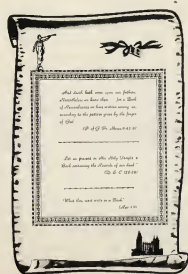 And death hath come upon our fathers,
Nevertheless we know them for a Book
of Remembrance we have written among us,
according to the pattern given by the finger
of God
(P. of G. Pr. Moses 6:45-46)
Let us present in His Holy Temple a
Book containing the Records of our dead
(D. & C. 128:24)
"What thou seest write in a Book"
(Rev. 1:11)